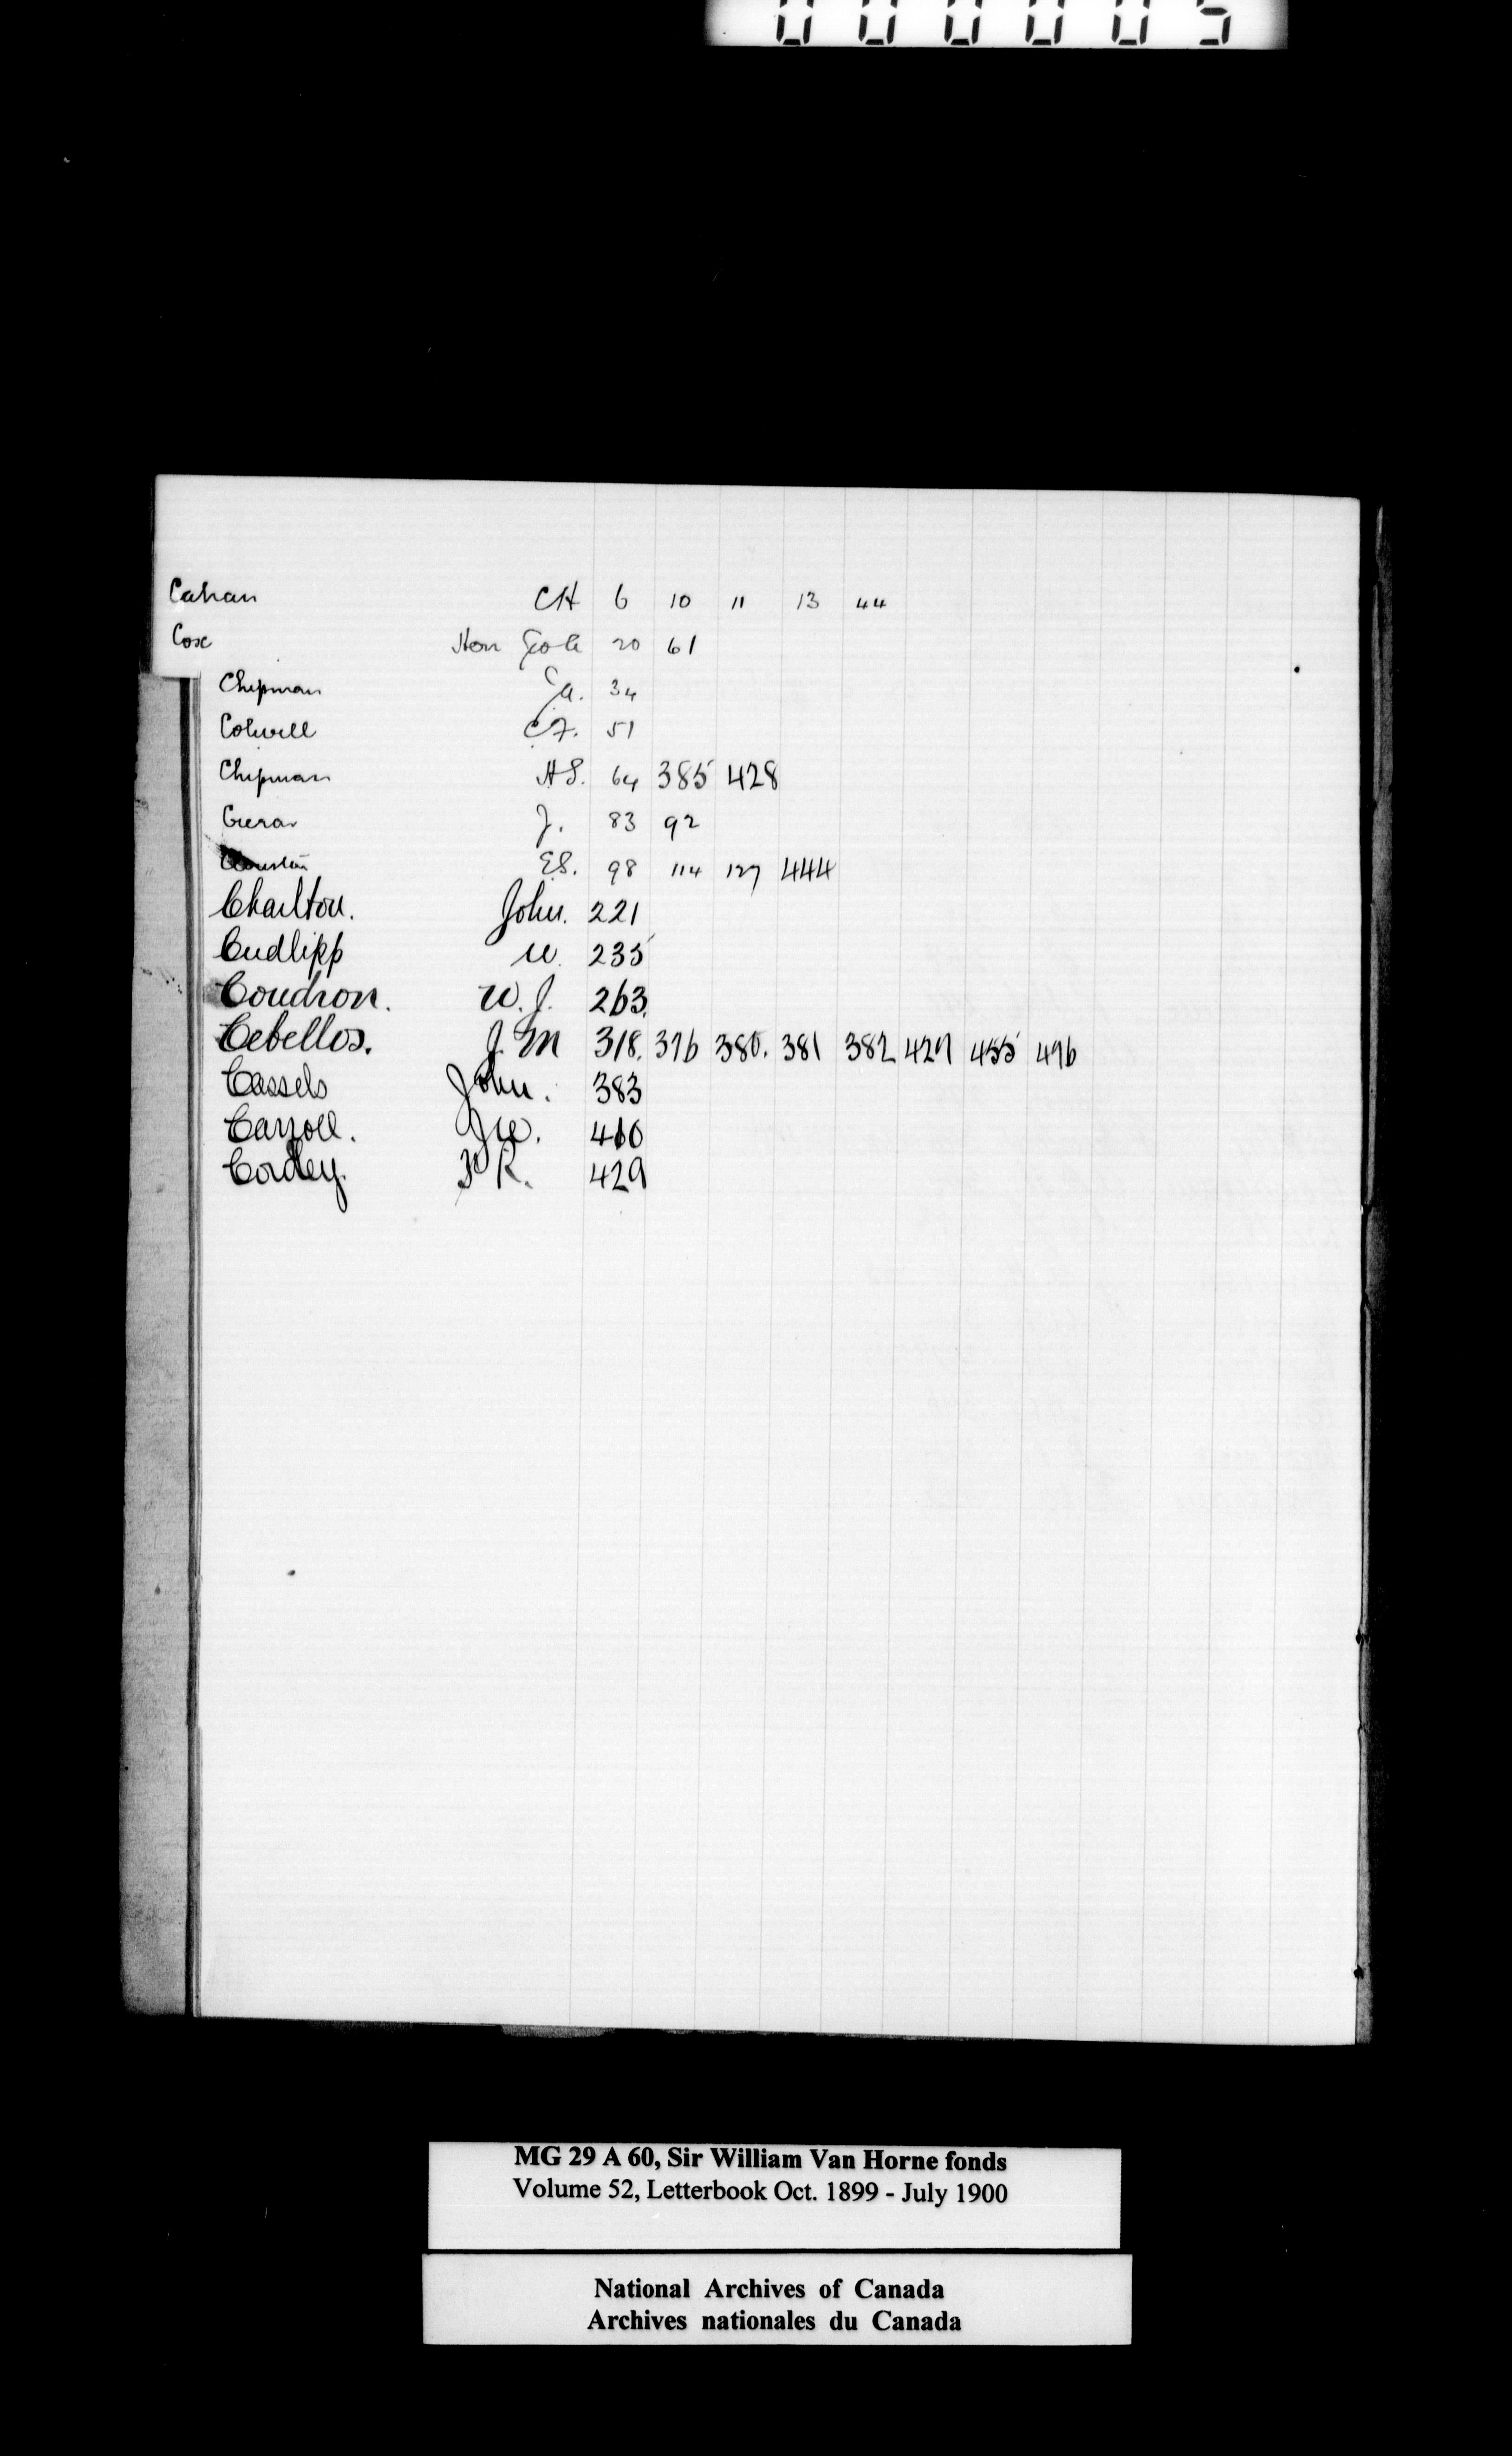 000005
Cahan CH 6 10 11 13 44
Cox Hon Geo A 20 61
Chipman J.A. 34
Colwell C.F. 51
Chipman H.S. 64 385 428
Crerar J. 83 92
Clouston E.S. 98 114 127 444
Charlton. John. 221
Cudlipp W. 235
Condron. W.J. 263.
Cebellos. J.M 318. 376 380. 381 382 427 455 496
Cassels John. 383
Carroll. J.W. 410
Cordley. F R. 429
MG 29 A 60, Sir William Van Horne fonds
Volume 52, Letterbook Oct. 1899 - July 1900
National Archives of Canada
Archives nationales du Canada